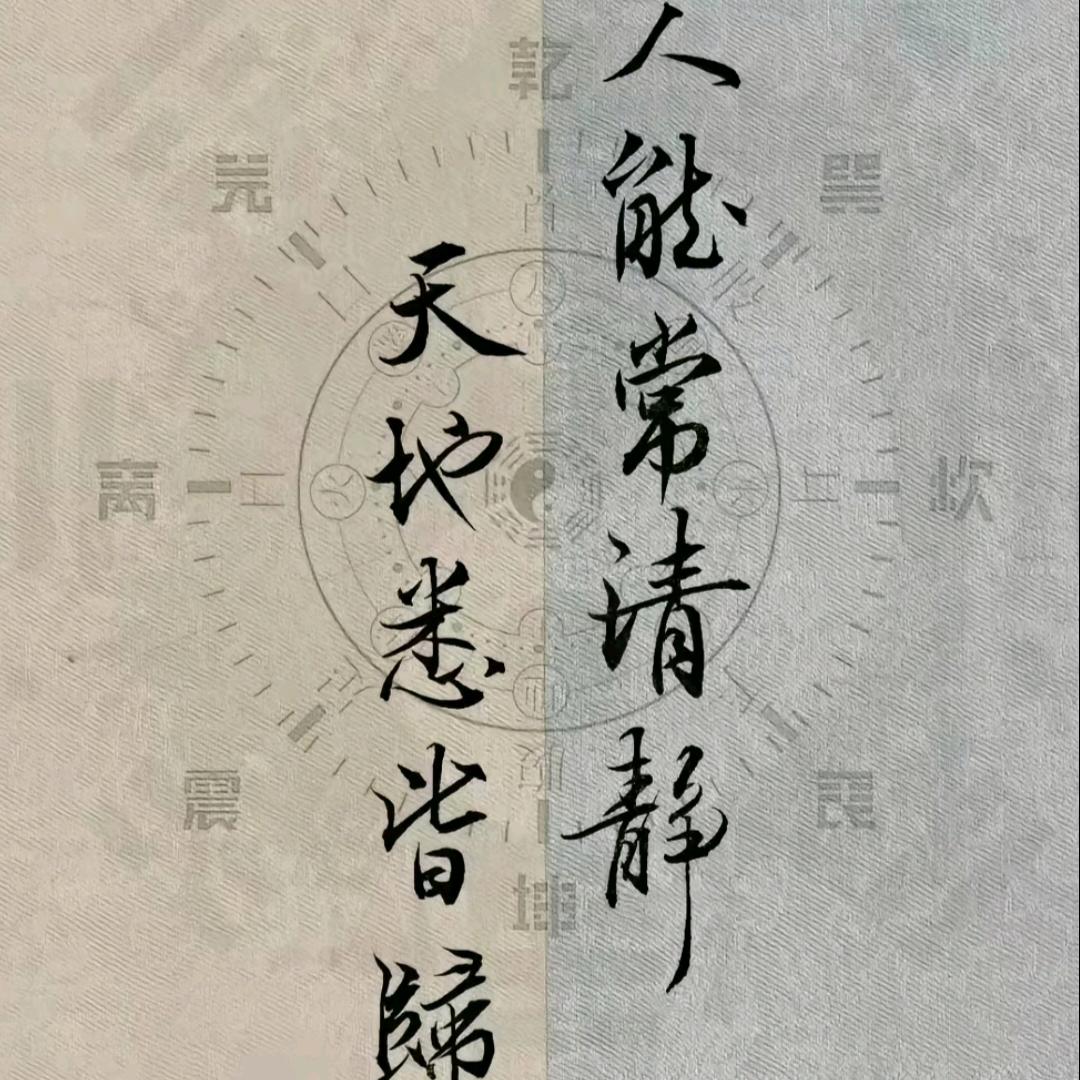 人能常清靜
天地悉皆歸
乾
兑
巽
离
坎
震
艮
坤